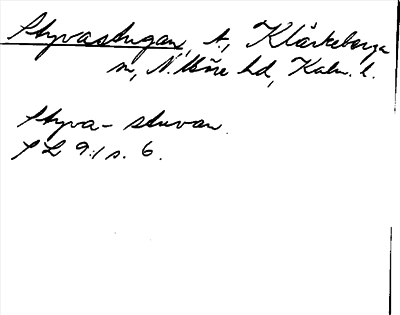 Styvastugan, t., Kläckeberga
sn, N. Möre hd, Kalm. l.
Styva-stuvan.
SL 9:1 s. 6.